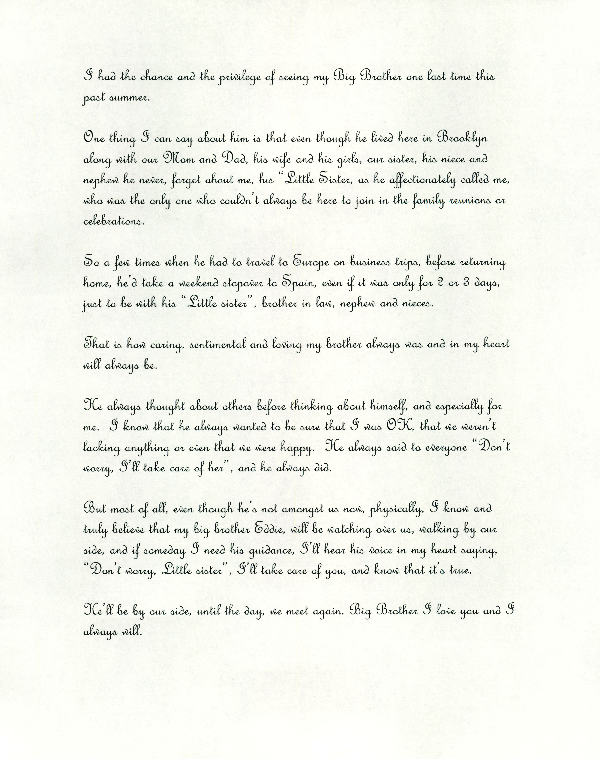 I had the chance and the privilege of seeing my Big Brother one last time this
past summer.
One thing I can say about him is that even though he lived here in Brooklyn
along with our Mom and Dad, his wife and his girls, our sister, his niece and
nephew he never, forget about me, his "Little Sister, as he affectionately called me,
who was the only one who couldn't always be here to join in the family reunions or
celebrations.
So a few times when he had to travel to Europe on business trips, before returning
home, he'd take a weekend stopover to Spain, even if it was only for 2 or 3 days,
just to be with his "Little sister", brother in law, nephew and nieces.
That is how caring, sentimental and loving my brother always was and in my heart
will always be.
He always thought about others before thinking about himself, and especially for
me. I know that he always wanted to be sure that I was OK, that we weren't
lacking anything or even that we were happy. He always said to everyone "Don't
worry, I'll take care of her", and he always did.
But most of all, even though he's not amongst us now, physically, I know and
truly believe that my big brother Eddie, will be watching over us, walking by our
side, and if someday I need his guidance, I'll hear his voice in my heart saying,
"Don't worry, Little sister", I'll take care of you, and know that it's true.
He'll be by our side, until the day, we meet again. Big Brother I love you and I
always will.